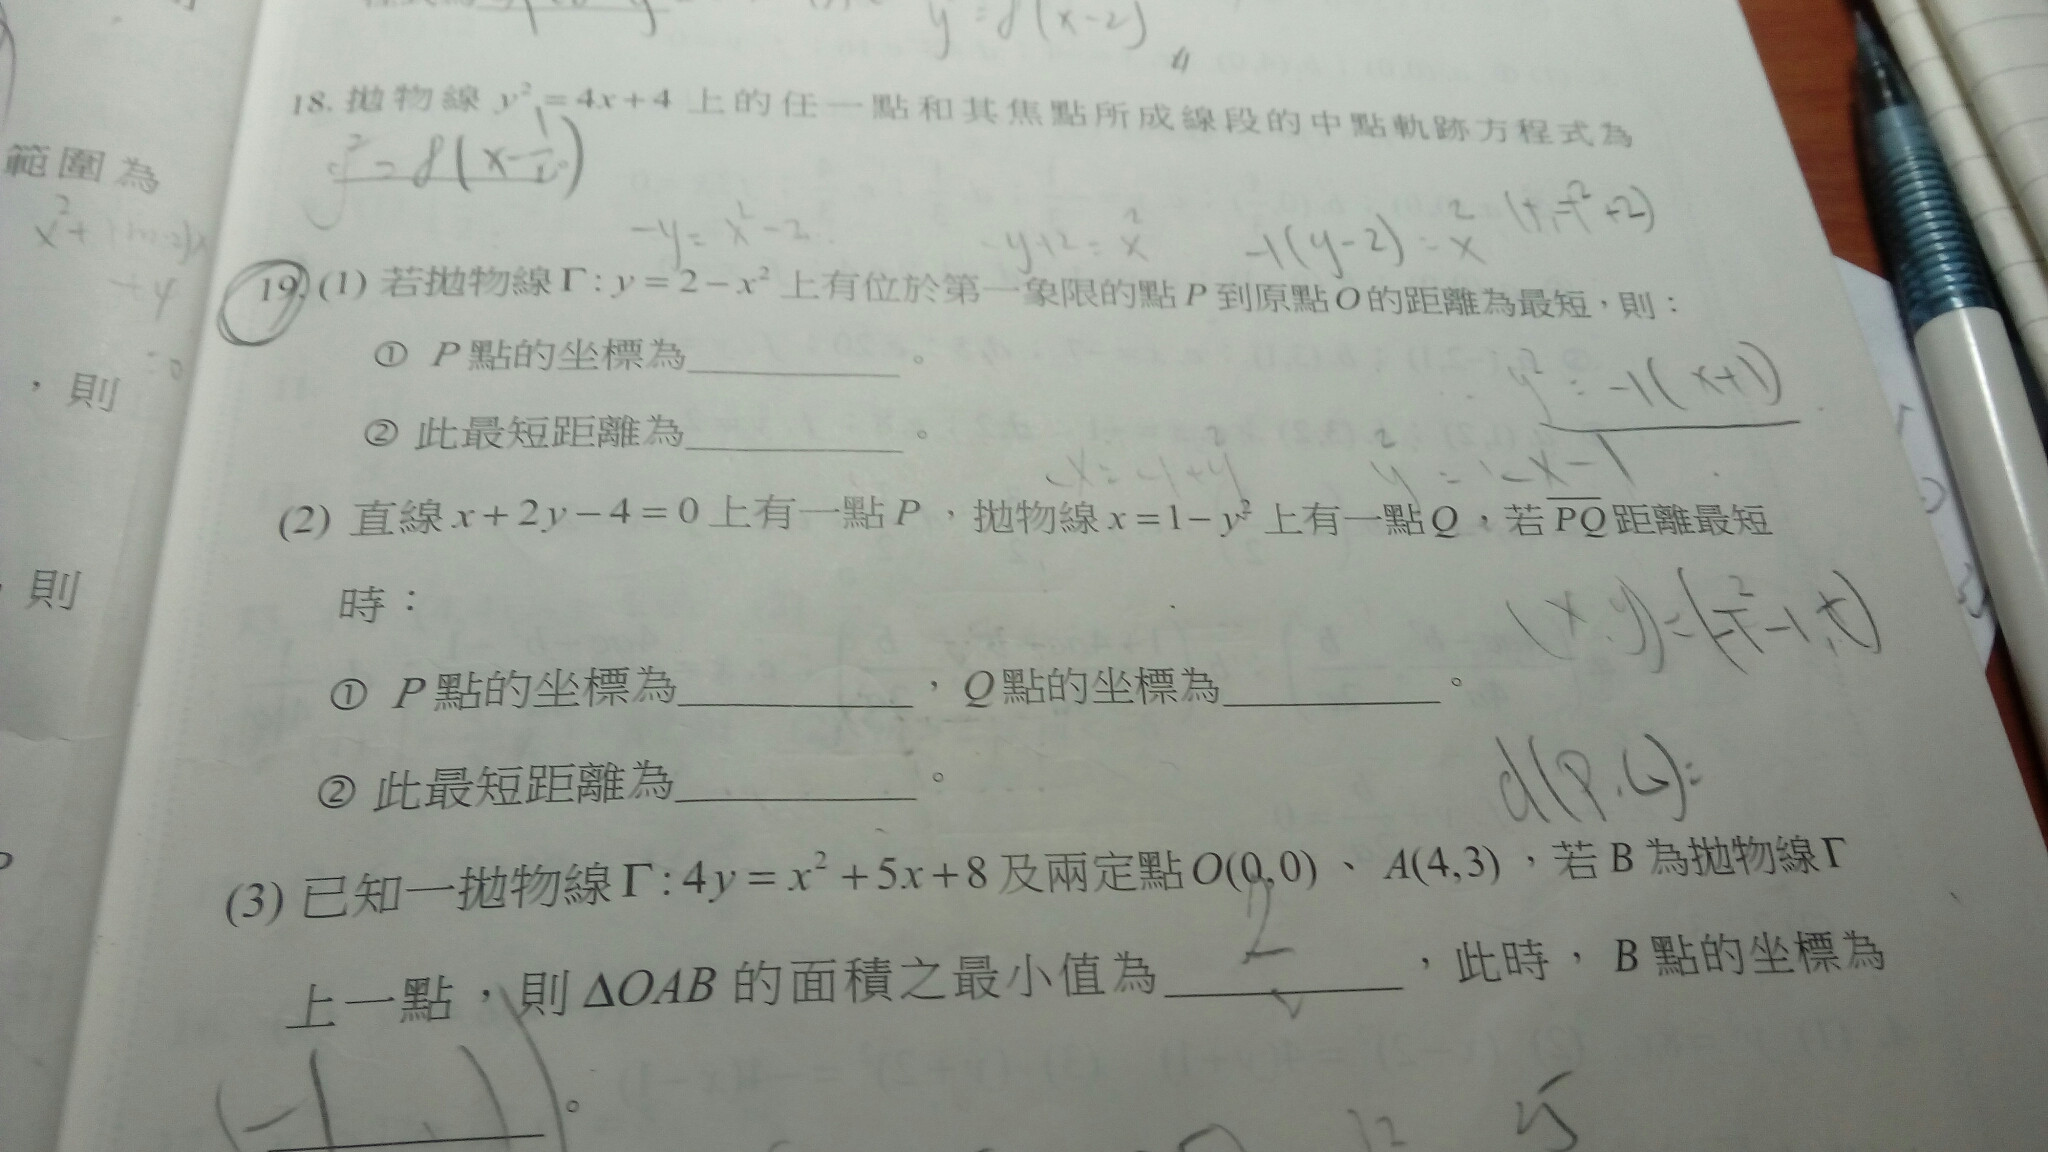 y = 8(x-2)
18. 拋物線 y² = 4x+4 上的任一點和其焦點所成線段的中點軌跡方程式為
範圍為
-y = x² - 2
-y+2 = x²
-1(y-2) = x²
(t, -t²+2)
19. (1) 若拋物線 Γ : y = 2 - x² 上有位於第一象限的點 P 到原點 O 的距離為最短,則:
① P 點的坐標為________。
y² = -1(x+1)
,則
② 此最短距離為________。
(2) 直線 x + 2y - 4 = 0 上有一點 P ,拋物線 x = 1 - y² 上有一點 Q ,若 PQ 距離最短
則
時:
(x, y) = (-t²-1, t)
① P 點的坐標為________,Q 點的坐標為________。
② 此最短距離為________。
(3) 已知一拋物線 Γ : 4y = x² + 5x + 8 及兩定點 O(0,0) 、 A(4,3) ,若 B 為拋物線 Γ
上一點,則 ΔOAB 的面積之最小值為 2 ,此時, B 點的坐標為
(-1 , )。